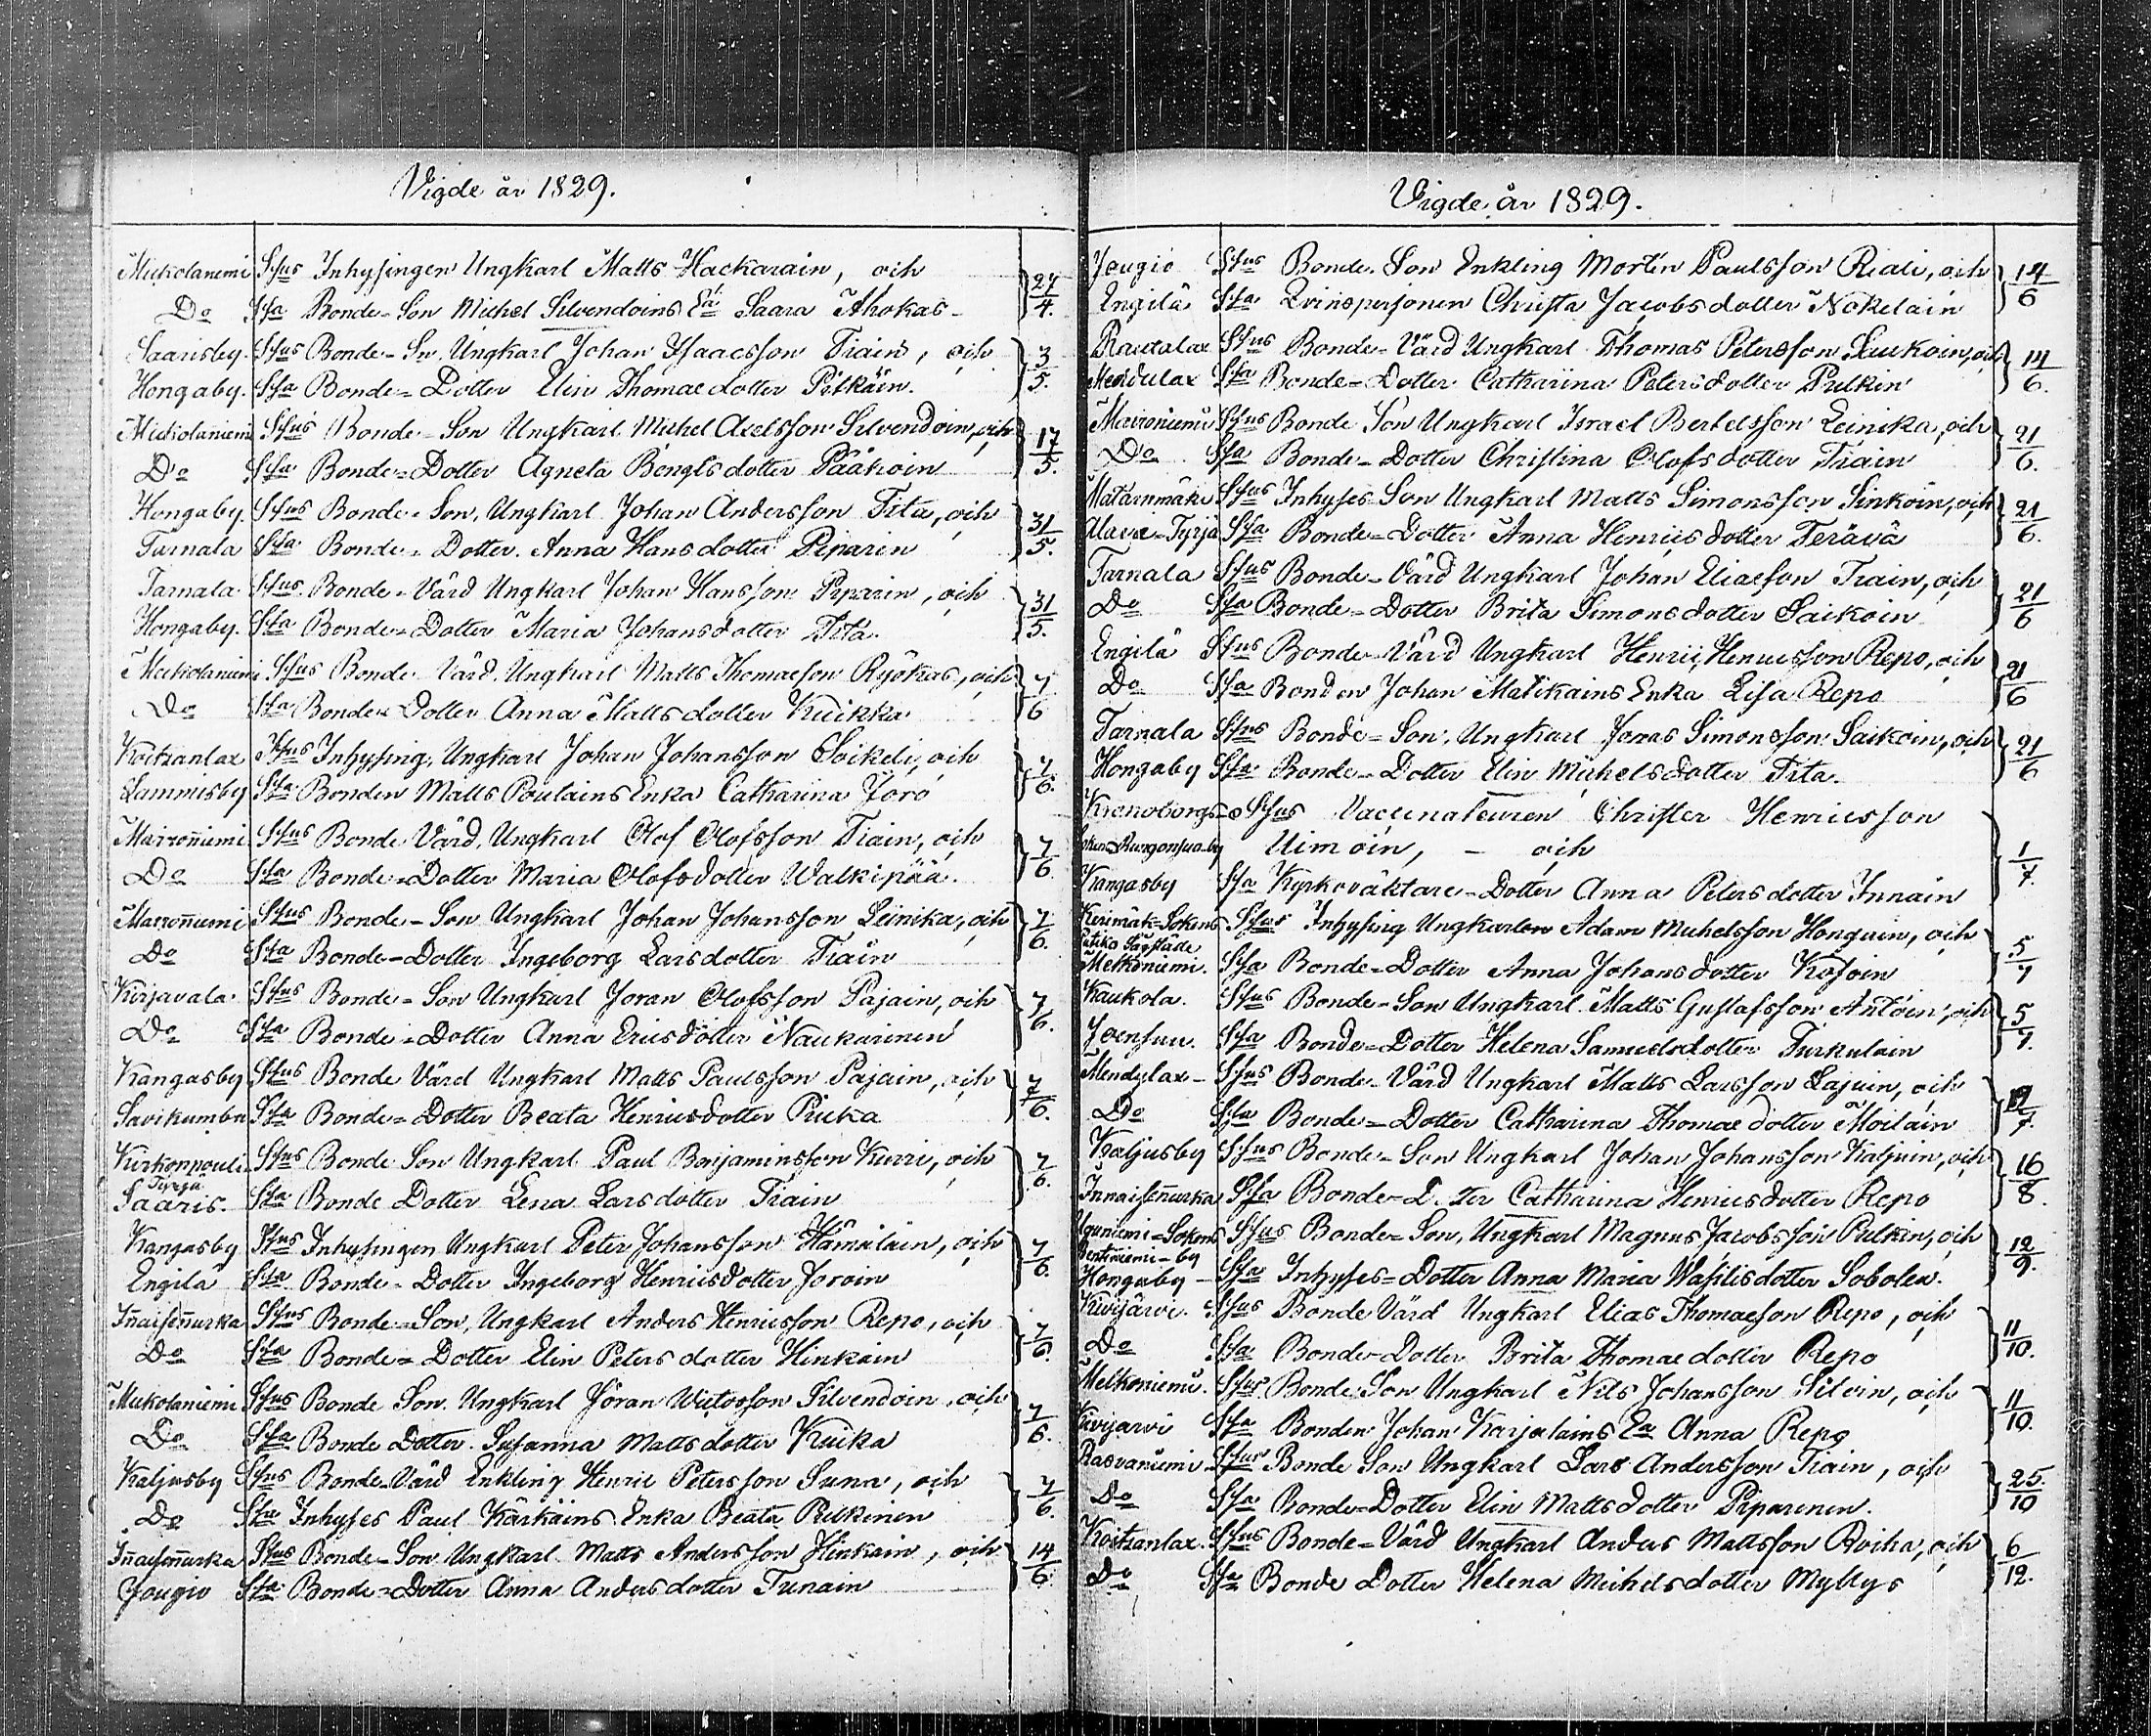 Vigde år 1829.
Mickolaniemi Sfus Inhysingen Ungkarl Matts Hackarain, och 27/4.
Do Sfa Bonde-Son Michel Silvendoins Ea Saara Ahokas
Saarisby. Sfus Bonde-Sn. Ungkarl Johan Isaacsson Tiain, och 3/5.
Hongaby. Sfa Bonde-Dotter Elin Thomaedotter Pitkäin.
Mickolaniemi Sfus Bonde-Son Ungkarl Michel Axelsson Silvendoin, och 17/5.
Do Sfa Bonde-Dotter Agneta Bengtsdotter Pääkoin
Hongaby. Sfus Bonde-Son, Ungkarl Johan Andersson Tita, och 31/5.
Tarnala Sfa Bonde-Dotter. Anna Hansdotter Piparin
Tarnala Sfus Bonde-Värd Ungkarl Johan Hansson Piparin, och 31/5.
Hongaby. Sfa Bonde-Dotter Maria Johansdotter Tita.
Mickolaniemi Sfus Bonde Värd. Ungkarl Matts Thomaeson Ryökas, och 7/6
Do Sfa Bonde-Dotter Anna Mattsdotter Kuikka
Koitzanlax Sfus Inhysing, Ungkarl Johan Johansson Soikeli, och 7/6.
Lammisby Sfa Bonden Matts Poutains Enka Catharina Joro
Marroniemi Sfus Bonde Värd, Ungkarl Olof Olofsson Tiain, och 7/6
Do Sfa Bonde-Dotter Maria Olofsdotter Walkipää.
Marroniemi Sfus Bonde-Son Ungkarl Johan Johansson Leinika, och 7/6.
Do Sfa Bonde-Dotter Ingeborg Larsdotter Tiain
Kirjavala. Sfus Bonde-Son Ungkarl Joran Olofsson Pajain, och 7/6.
Do Sfa Bonde-Dotter Anna Ericsdotter Naukarinen
Kangasby Sfus Bonde Värd Ungkarl Matts Paulsson Pajain, och 7/6.
Savikumbu Sfa Bonde-Dotter Beata Henricsdotter Picka
Kirkonpouli Sfus Bonde Son Ungkarl Paul Benjaminsson Kurri, och 7/6.
Tyrja
Saaris. Sfa Bonde Dotter Lena Larsdotter Tiain
Kangasby Sfus Inhysingen Ungkarl Peter Johansson Hämälain, och 7/6.
Engilä Sfa Bonde-Dotter Ingeborg Henricsdotter Joroin
Iñaisenurka Sfus Bonde-Son, Ungkarl Anders Henricsson Repo, och 7/6.
Do Sfa Bonde-Dotter Elin Petersdotter Hinkain
Mickolaniemi Sfus Bonde Son. Ungkarl Jöran Wictorsson Silvendoin, och 7/6.
Do Sfa Bonde Dotter. Susanna Mattsdotter Kuika
Kaljusby Sfus Bonde-Värd Enkling Henric Petersson Suna, och 7/6.
Do Sfa Inhyses Paul Kärkäins Enka Beata Pulkinen
Iñaisenurka Sfus Bonde-Son Ungkarl Matts Andersson Hinkain, och 14/6.
Jougio Sfa Bonde-Dotter Anna Andersdotter Tunain
Vigde år 1829.
Jougio Sfus Bonde-Son Enkling Morten Paulsson Riali, och 14/6
Engilä Sfa Qvinspersonen Christa Jacobsdotter Nokelain
Rautalax Sfus Bonde-Värd Ungkarl Thomas Petersson Laukoin, och 14/6.
Mendulax Sfa Bonde-Dotter Catharina Petersdotter Pulkin
Marroniemi Sfus Bonde Son Ungkarl Israel Bertelsson Leinika, och 21/6.
Do Sfa Bonde-Dotter Christina Olofsdotter Tiain
Matarinmäki Sfus Inhyses-Son Ungkarl Matts Simonsson Sinkoin, och 21/6.
Tyrja Sfa Bonde-Dotter Anna Henricsdotter Terävä
Tarnala Sfus Bonde-Värd Ungkarl Johan Eliaeson Tiain, och 21/6
Do Sfa Bonde-Dotter Brita Simonsdotter Saikoin
Engilä Sfus Bonde-Värd Ungkarl Henric Henricsson Repo, och 21/6
Do Sfa Bonden Johan Matikains Enka Lisa Repo
Tarnala Sfus Bonde-Son, Ungkarl Jonas Simonsson Saikoin, och 21/6
Hongaby Sfa Bonde-Dotter Elin Michelsdotter Tita.
Kronoborgs- Sfus Vaccinateuren Christer Henricsson
Uimoin, - och 1/7.
Kangasby Sfa Kyrkoväktare-Dotter Anna Petersdotter Innain
Kerimäk-Sokens Sfus Inhysing Ungkarlen Adam Michelsson Honguin, och 5/7
Putiko Sågställe
Melkoniemi. Sfa Bonde-Dotter Anna Johansdotter Kosoin
Kaukola. Sfus Bonde-Son Ungkarl Matts Gustafsson Antoin, och 5/7.
Joensuu. Sfa Bonde-Dotter Helena Samuelsdotter Turkulain
Mendylax- Sfus Bonde-Värd Ungkarl Matts Larsson Lajuin, och
Do Sfa Bonde-Dotter Catharina Thomaedotter Moilain
Kaljusby Sfus Bonde-Son Ungkarl Johan Johansson Kaljuin, och 16/8.
Innaisenurka Sfa Bonde-D. ter Catharina Henricsdotter Repo
Uguniemi-Sokens Sfus Bonde-Son, Ungkarl Magnus Jacobsson Pulkin, och 12/9.
Hongaby- Sfa Inhyses-Dotter Anna Maria Wasilisdotter Sobolew.
Kivijärvi. Sfus Bonde Värd Ungkarl Elias Thomaeson Repo, och 11/10.
Do Sfa Bonde-Dotter Brita Thomaedotter Repo
Melkoniemi. Sfus Bonde Son Ungkarl Nils Johansson Silvin, och 11/10.
Kivijärvi Sfa Bonden Johan Karjalains Ea Anna Repo
Rasvaniemi Sfus Bonde Son Ungkarl Lars Andersson Tiain, och 25./10
Do Sfa Bonde-Dotter Elin Mattsdotter Piparinen.
Koitzanlax. Sfus Bonde-Värd Ungkarl Anders Mattsson Roiha, och 6/12.
Do Sfa Bonde Dotter Helena Michelsdotter Myllys